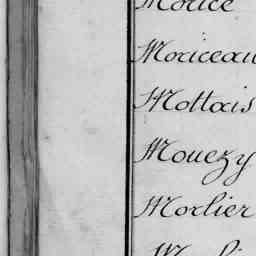 Morice
Moriceau
Mottais
Mouezy
Morlier